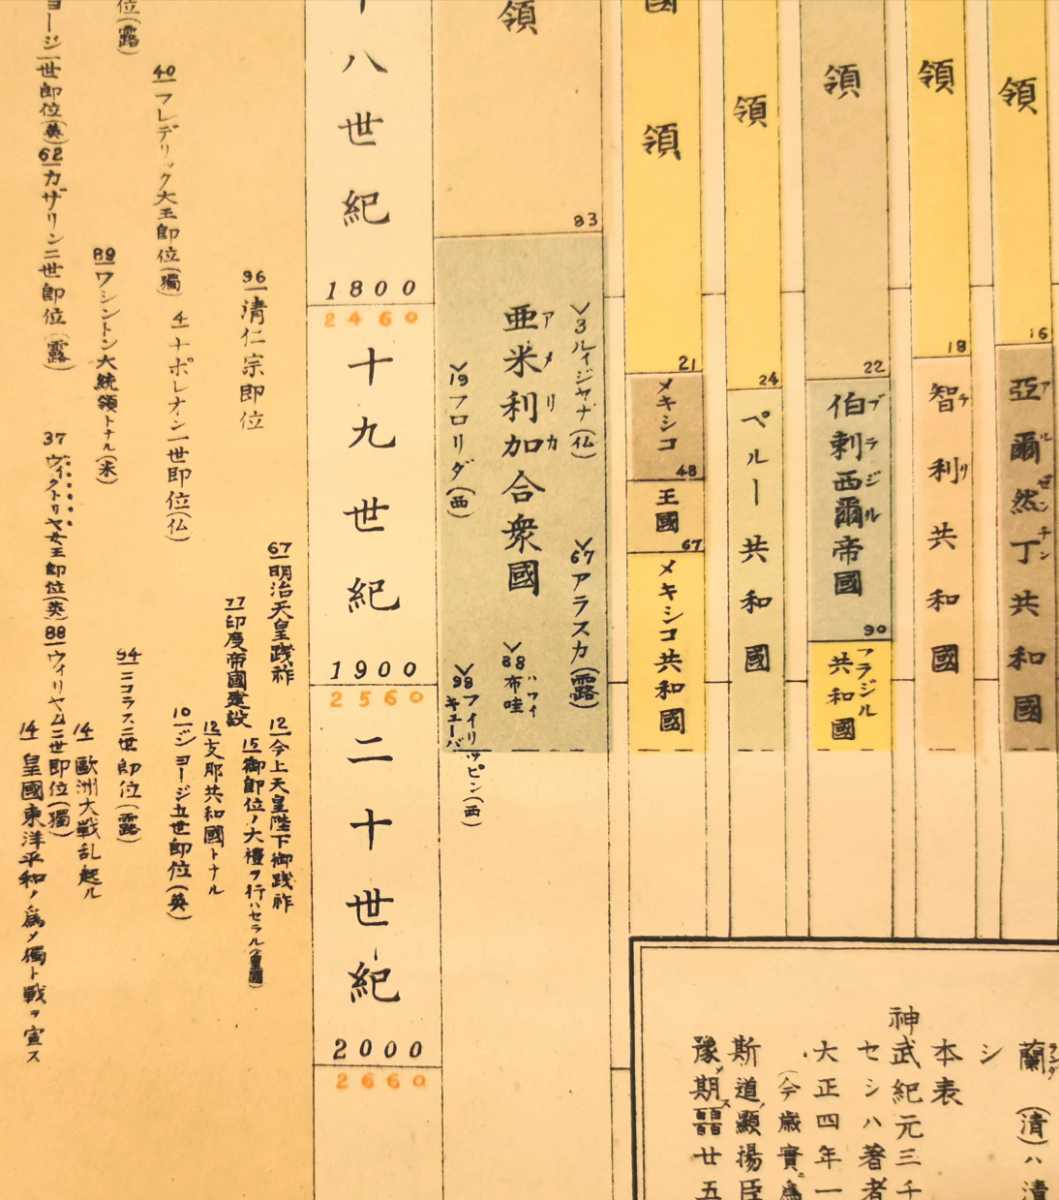 領
領
領
領
領
國
領
十八世紀
1800
2460
十九世紀
1900
2560
二十世紀
2000
2660
16
亞爾然丁共和國
アルゼンチン
18
智利共和國
チリ
22
伯剌西爾帝國
ブラジル
90
ブラジル
共和國
24
ペルー共和國
21
メキシコ
48
王國
67
メキシコ共和國
83
3ルイジヤナ(仏)
67アラスカ(露)
亜米利加合衆國
アメリカ
88布哇
ハワイ
19フロリダ(西)
98フイリッピン(西)
キューバ
67明治天皇践祚
12今上天皇陛下御践祚
96清仁宗即位
77印度帝國建設
15御即位ノ大禮ヲ行ハセラル(皇國)
12支那共和國トナル
40フレデリック大王即位(獨)
4ナポレオン一世即位(仏)
10ジョージ五世即位(英)
位(露)
89ワシントン大統領トナル(米)
94ニコラス二世即位(露)
14歐洲大戰乱起ル
ョージ二世即位(英)
62カザリン二世即位(露)
37ヴィクトリヤ女王即位(英)
88ウィリヤム二世即位(獨)
14皇國東洋平和ノ爲メ獨ト戰ヲ宣ス
蘭(清)ハ清
シ
本表
神武紀元三千
セシハ著者
大正四年一
(今歳實爲
斯道顯揚臣
豫期
廿五